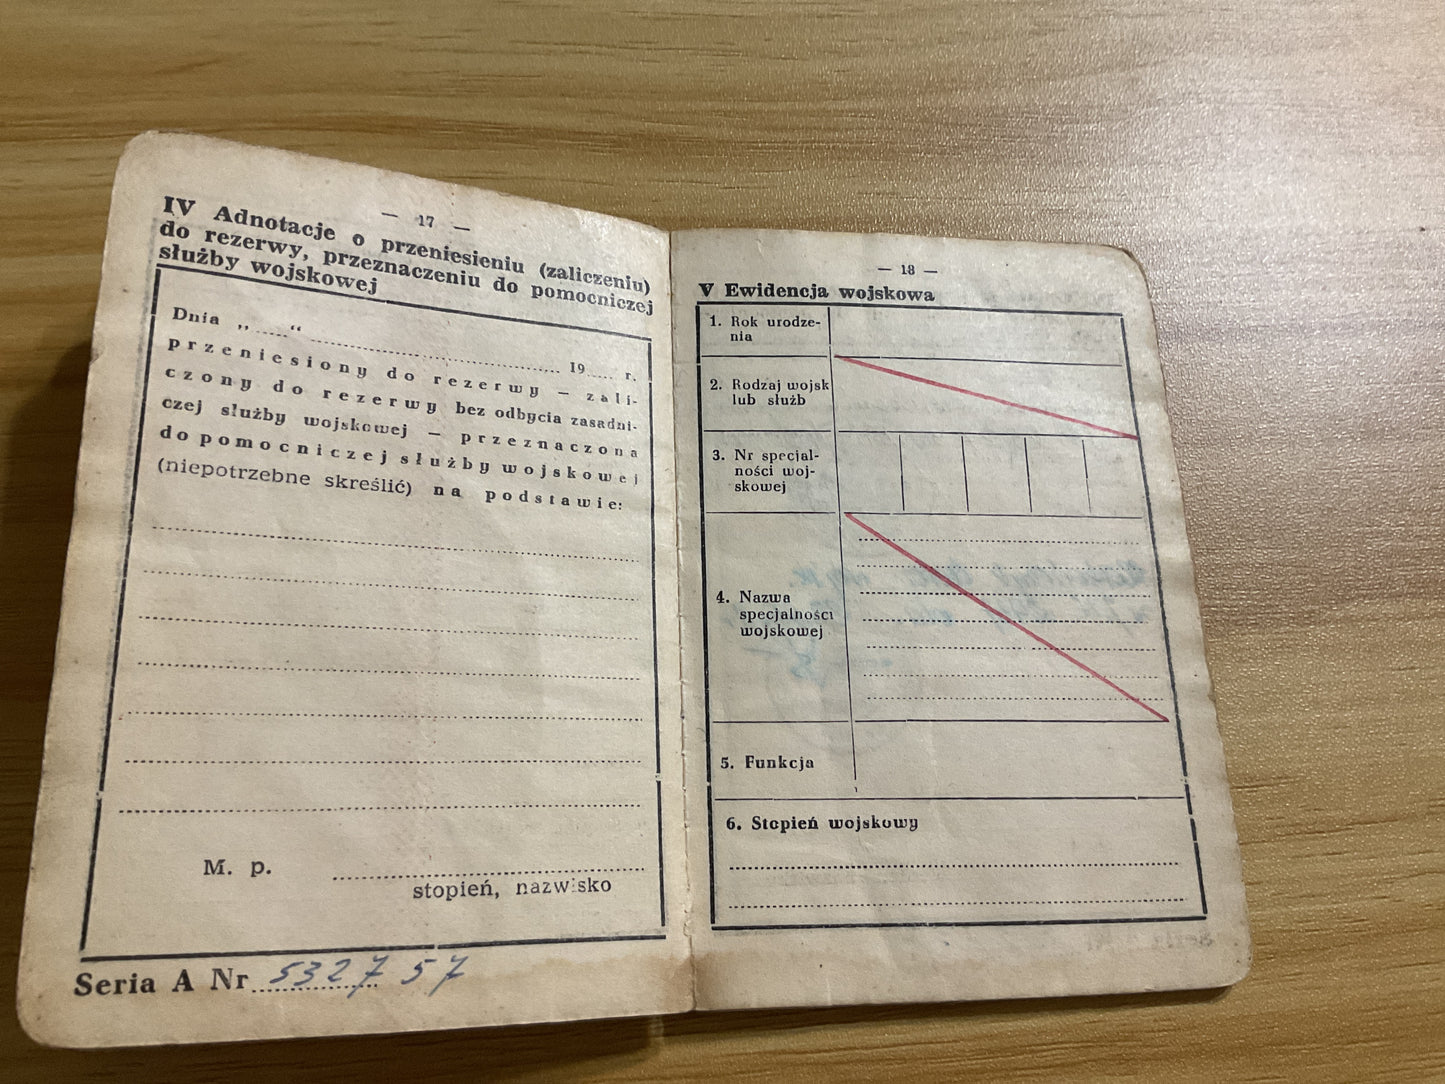 — 17 —
IV Adnotacje o przeniesieniu (zaliczeniu)
do rezerwy, przeznaczeniu do pomocniczej
służby wojskowej
Dnia „......“ .......................... 19...... r.
przeniesiony do rezerwy — zali-
czony do rezerwy bez odbycia zasadni-
czej służby wojskowej — przeznaczona
do pomocniczej służby wojskowej
(niepotrzebne skreślić) na podstawie:
M. p.
stopień, nazwisko
Seria A Nr 532757
— 18 —
V Ewidencja wojskowa
1. Rok urodze-
nia
2. Rodzaj wojsk
lub służb
3. Nr specjal-
ności woj-
skowej
4. Nazwa
specjalności
wojskowej
5. Funkcja
6. Stopień wojskowy